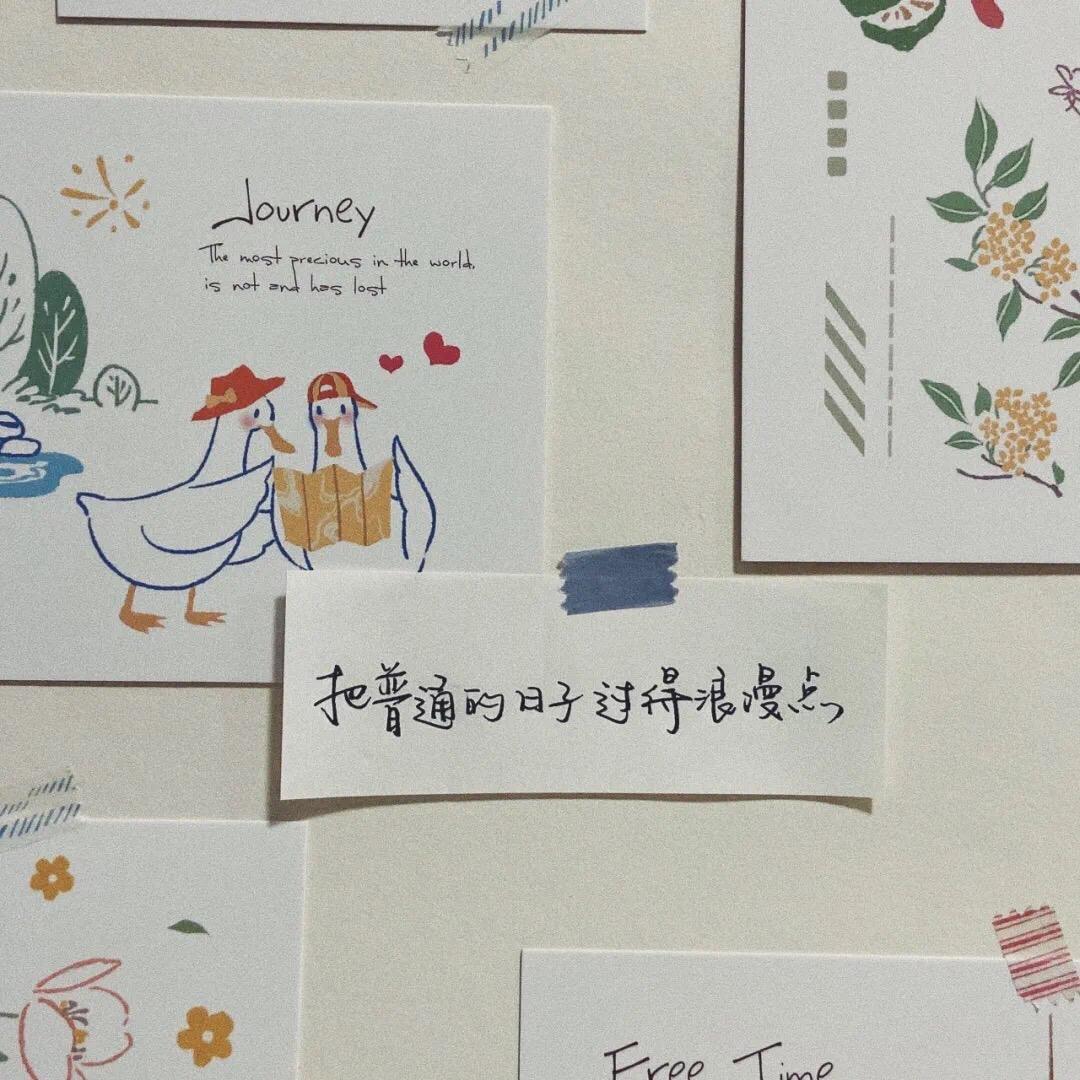 Journey
The most precious in the world,
is not and has lost
把普通的日子过得浪漫点
Free Time